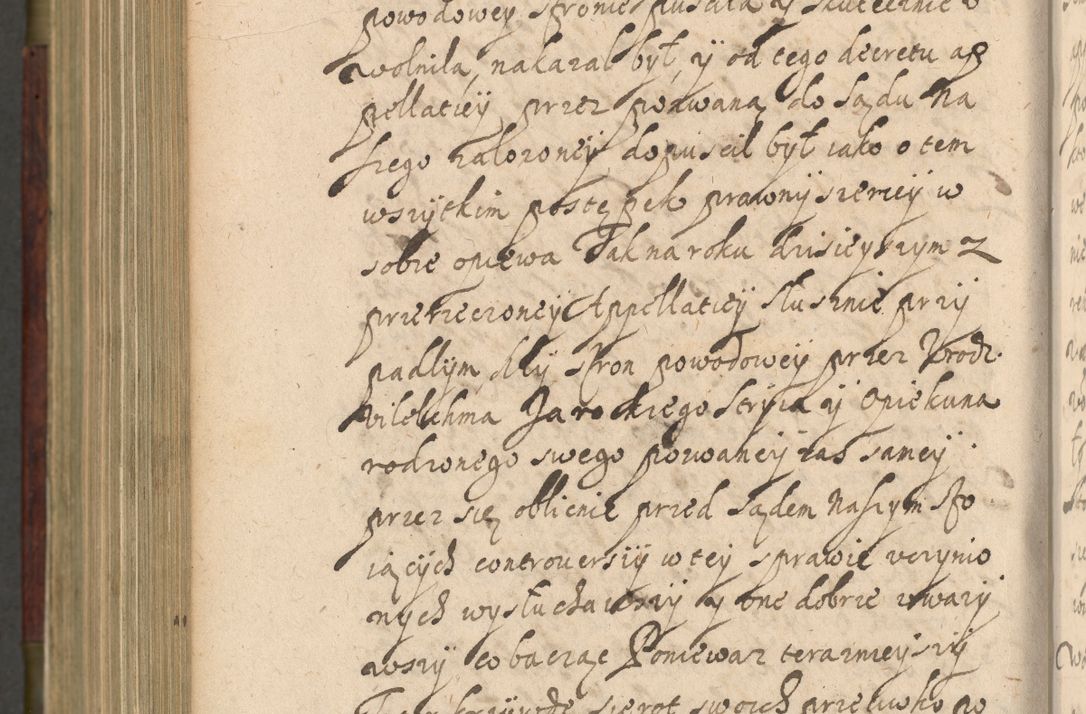 powodowey stronie puscila y skutecznie v
wolnila, nakazal był, y od tego decretu ap
pellatiey przez pozwaną do Sądu Na
szego zalozoney dopuscil był iako o tem
wszytkim postępek prawny szerzey w
sobie opiewa Tak na roku dzisieyszym z
przerzeczoney Appellatiey słusznie przy
padłym, gdy stron powodowey przez Vrodz.
Vilelhma Jarockiego Stryia y Opiekuna
rodzonego swego pozwaney zas samey
przez się oblicznie przed Sądem Naszym sto
iących controuersiy w tey sprawie vczynio
nych wysłuchawszy y one dobrze vwazy
wszy co bacząc Poniewaz teraznieyszy
krzywdę sierot swoich przeciwko po